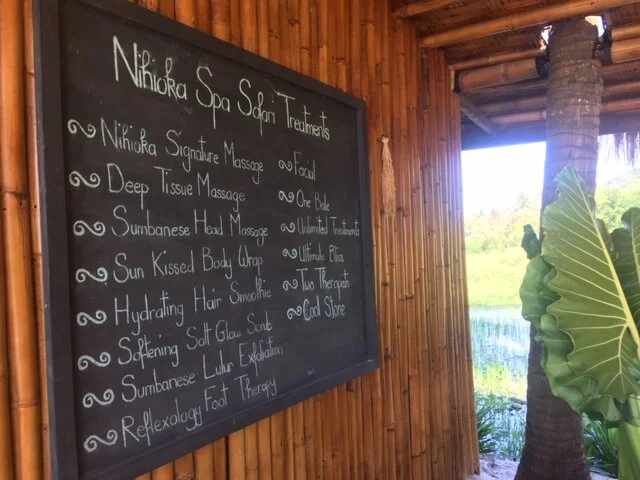 Nihioka Spa Safari Treatments
Nihioka Signature Massage
Deep Tissue Massage
Sumbanese Head Massage
Sun Kissed Body Wrap
Hydrating Hair Smoothie
Softening Salt Glow Scrub
Sumbanese Lulur Exfoliation
Reflexology Foot Therapy
Facial
One Bale
Unlimited Treatments
Ultimate Bliss
Two Therapists
Cool Stone